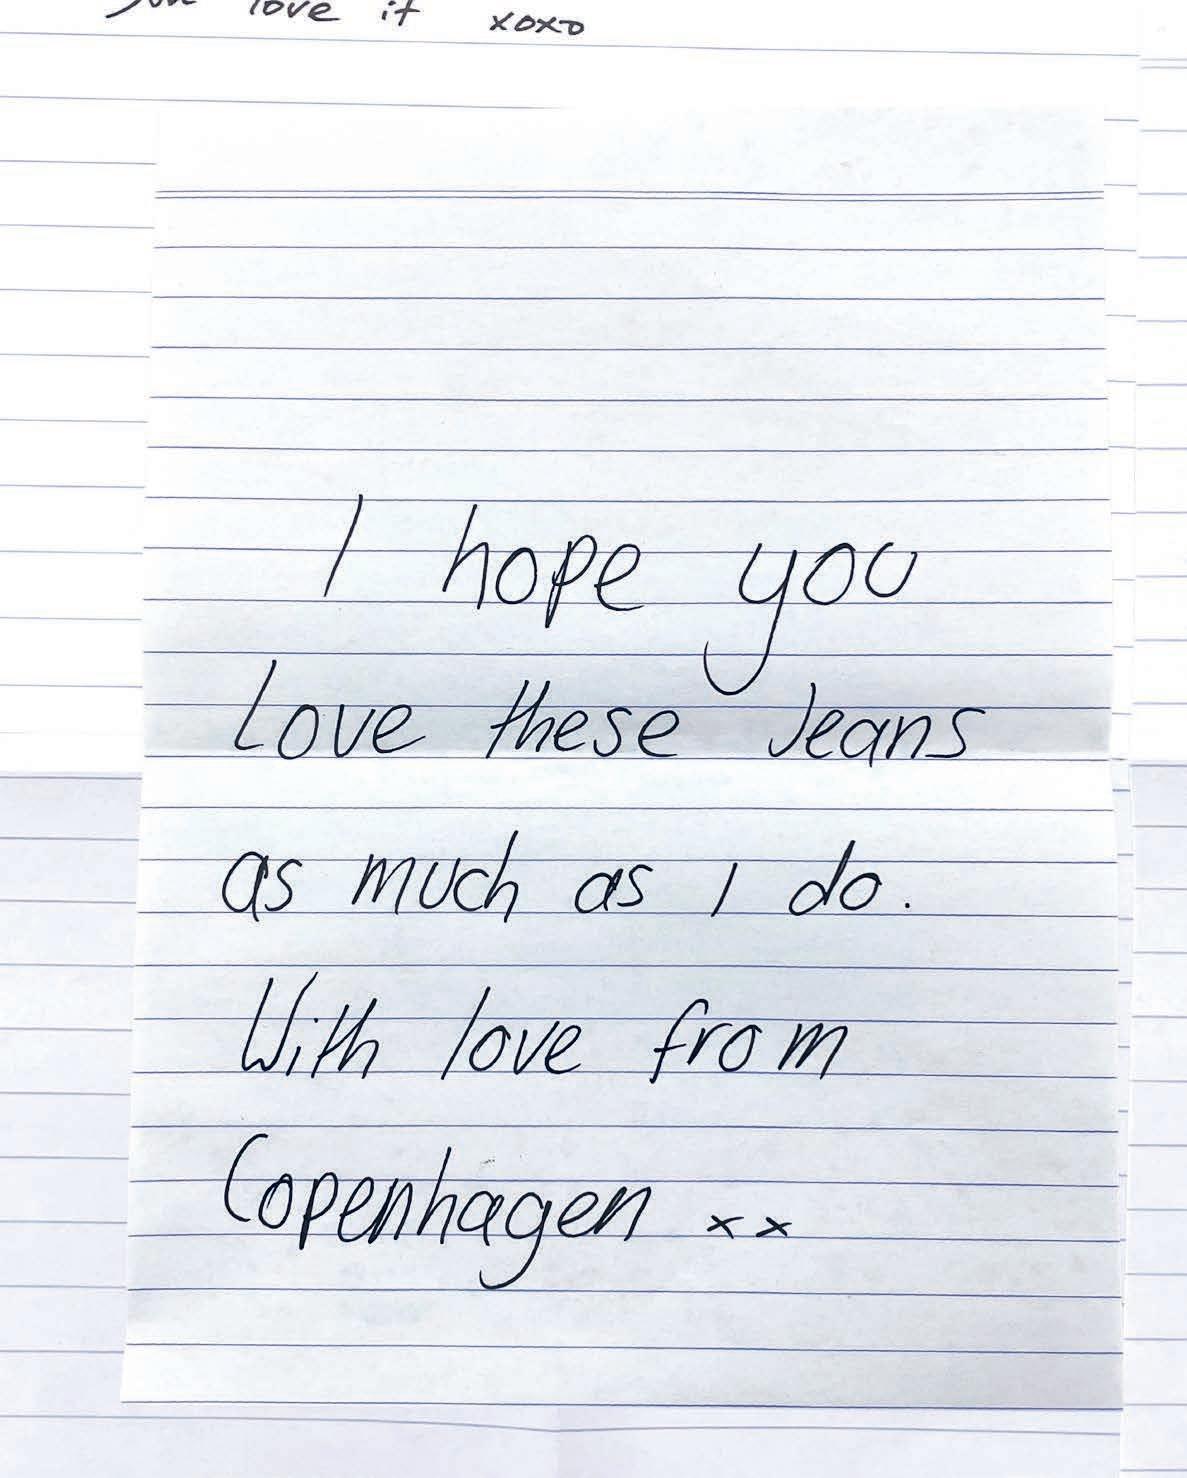 you love it xoxo
I hope you
Love these Jeans
as much as I do.
With love from
Copenhagen xx